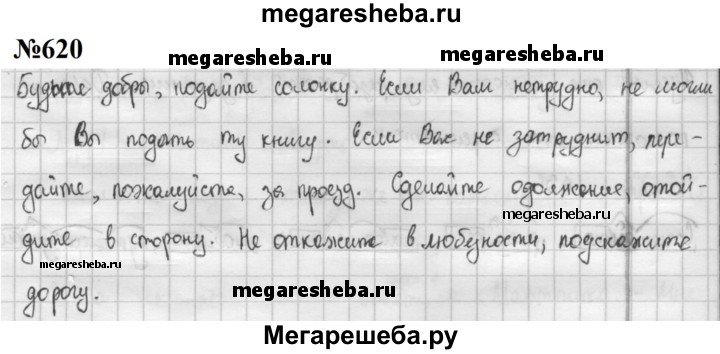 megaresheba.ru
№620
megaresheba.ru
megaresheba.ru
Будьте добры, подайте солонку. Если Вам нетрудно, не могли
бы Вы подать ту книгу. Если Вас не затруднит, пере-
дайте, пожалуйста, за проезд. Сделайте одолжение, отой-
megaresheba.ru
дите в сторону. Не откажите в любезности, подскажите
megaresheba.ru
дорогу.
megaresheba.ru
Мегарешеба.ру